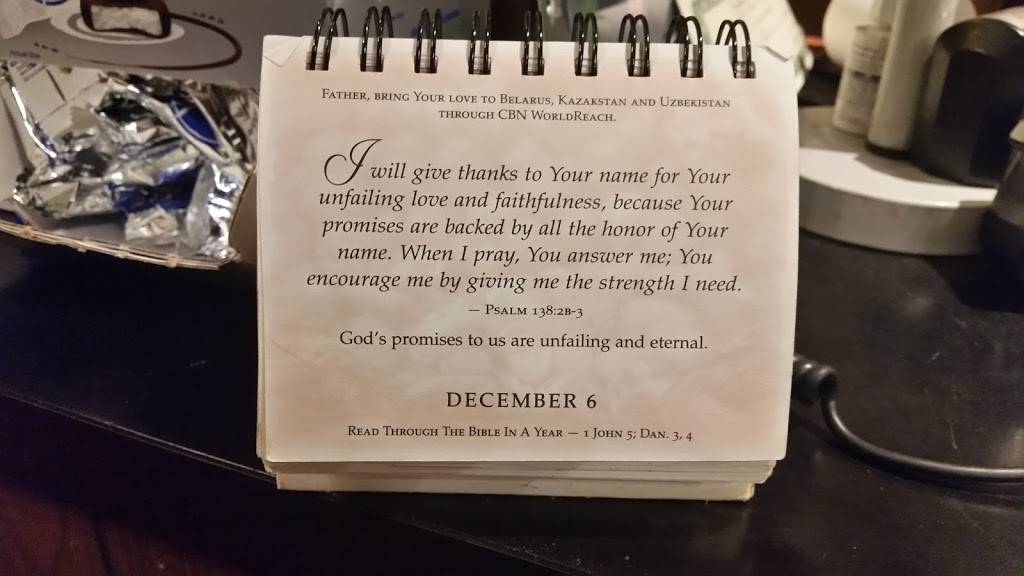 Father, bring Your love to Belarus, Kazakstan and Uzbekistan
through CBN WorldReach.
I will give thanks to Your name for Your
unfailing love and faithfulness, because Your
promises are backed by all the honor of Your
name. When I pray, You answer me; You
encourage me by giving me the strength I need.
— Psalm 138:2b-3
God's promises to us are unfailing and eternal.
DECEMBER 6
Read Through The Bible In A Year — 1 John 5; Dan. 3, 4